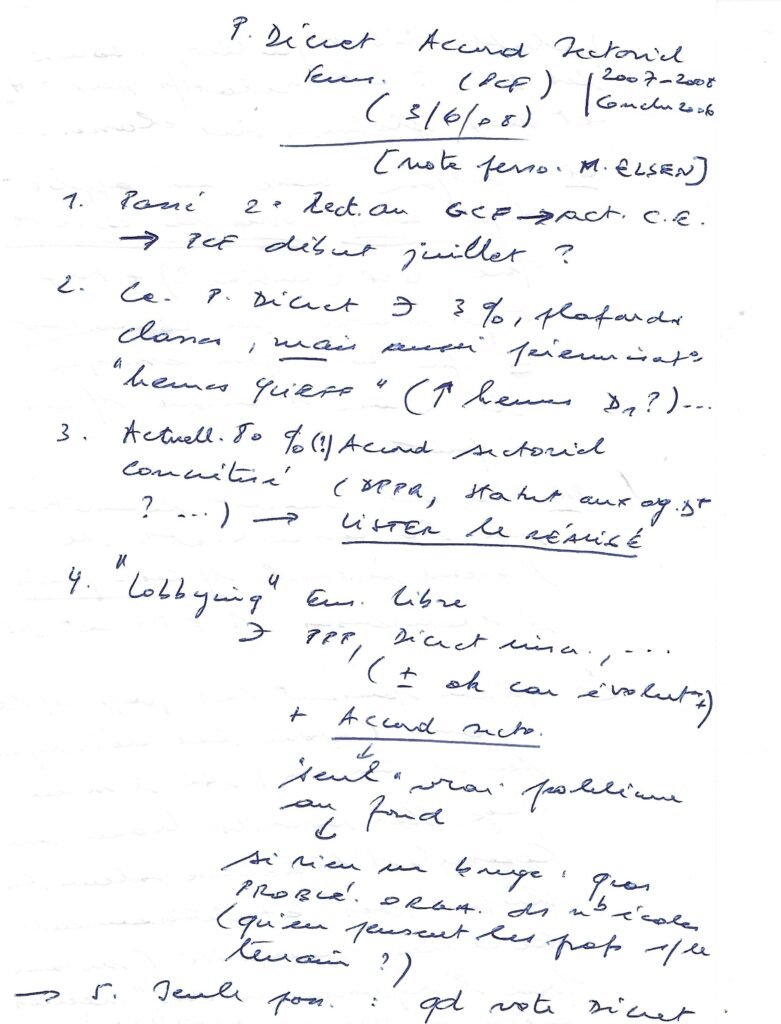 P. Décret Accord Sectoriel
Ens. (PCF) | 2007-2008
(3/6/08) | Conclu 2006
[note perso. M. ELSEN]
1. Passé 2e lect. au GCF → act. C.E.
→ PCF début juillet ?
2. Ce P. Décret ∋ 3 %, plafonds
classes, mais aussi pérennisat°
"heures (↑ heures D1 ?)...
3. Actuell. 80 % (?) Accord sectoriel
concrétisé (DPPR, statut aux. ag. Dt
? ...) → LISTER le RÉALISÉ
4. "Lobbying" Ens. libre
∋ PPP, Décret , ...
(± ok car évolut° +)
+ Accord secto.
↓
"seul" vrai problème
au fond
↓
si rien ne bouge : gros
PROBLÉ. ORGA. ds nb écoles
(qu'en pensent les profs s/le
terrain ?)
→ 5. Seule pos. : qd vote Décret